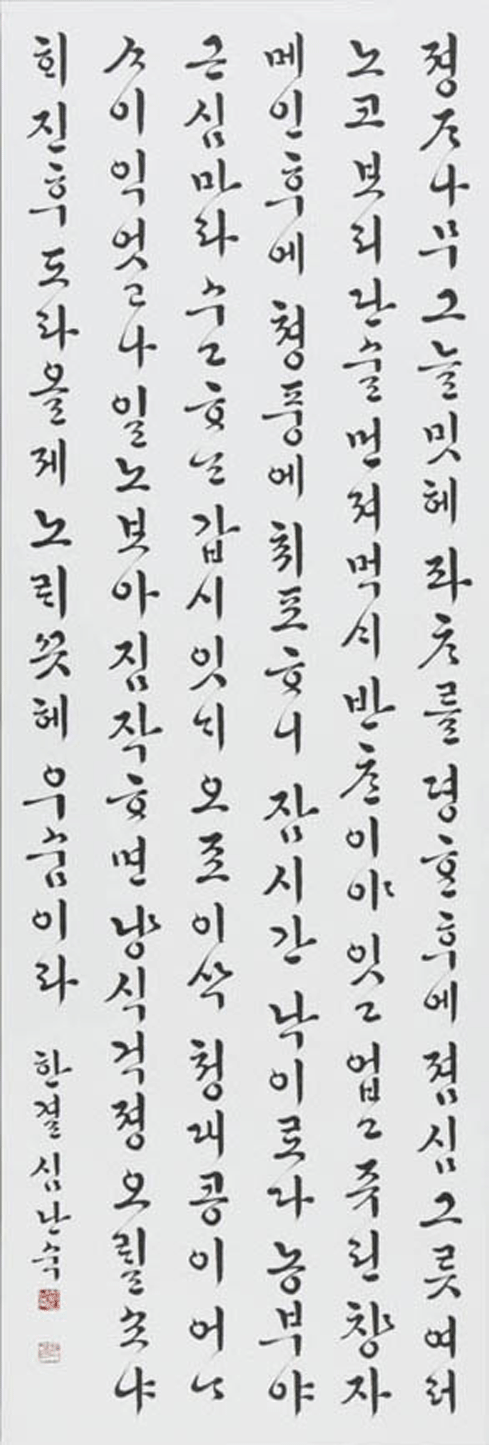 졍ᄌᆞ나무 그늘 밋헤 좌ᄎᆞ를 뎡ᄒᆞᆫ후에 졈심 그릇 여러
노코 보리단술 먼져 먹ᄉᆡ 반ᄎᆞᆫ이야 잇고 업고 쥬린 창자
메인 후에 쳥풍에 취포ᄒᆞ니 잠시간 낙이로다 농부야
근심마라 수고ᄒᆞᄂᆞᆫ 갑시 잇ᄂᆡ 오조이삭 청대콩이 어ᄂᆞ
ᄉᆞ이 익엇고나 일노보아 짐작ᄒᆞ면 냥식걱졍 오ᄅᆡᆯ소냐
ᄒᆡ진후 도라올제 노ᄅᆡᄭᅳᆺ헤 우숨이라 한결 심난숙